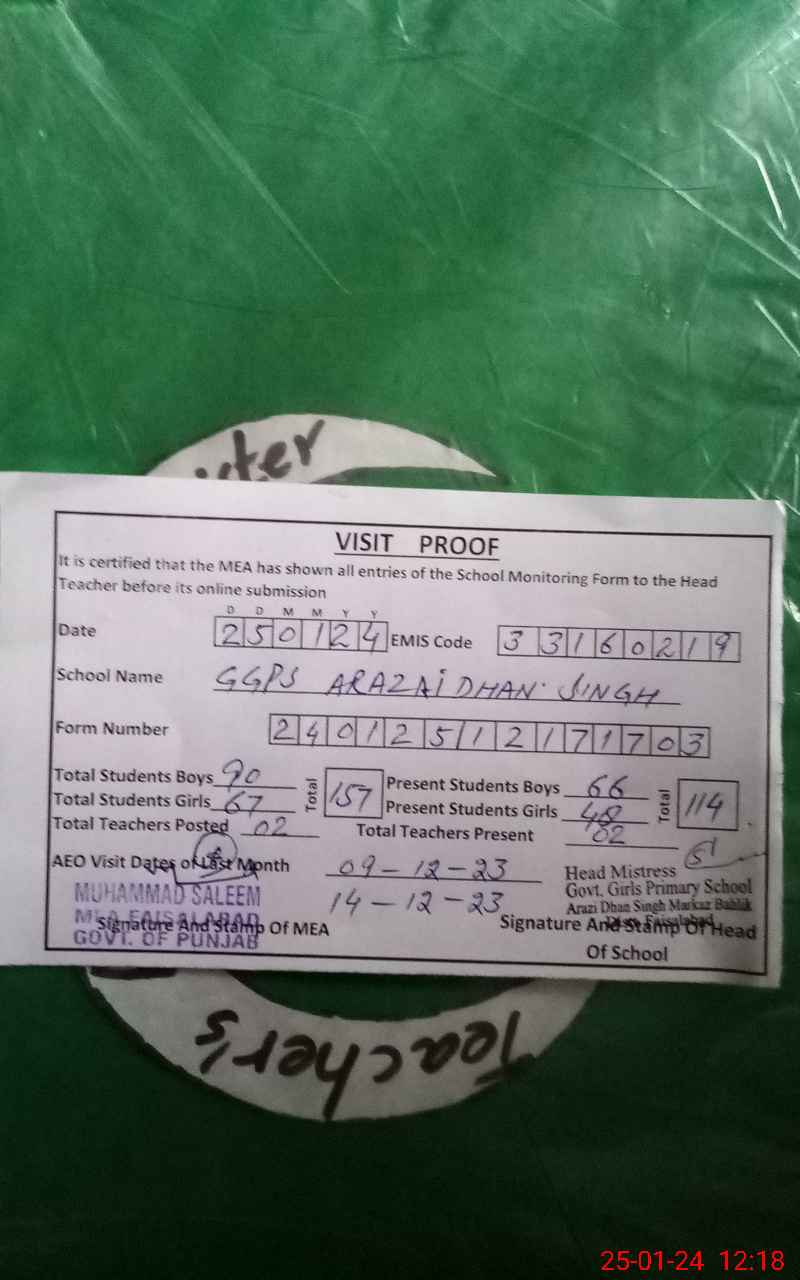 VISIT PROOF
It is certified that the MEA has shown all entries of the School Monitoring Form to the Head
Teacher before its online submission
D D M M Y Y
Date 250124 EMIS Code 33160219
School Name GGPS ARAZAI DHAN SINGH
Form Number 24012512171703
Total Students Boys 90 Total 157 Present Students Boys 66 Total 114
Total Students Girls 67 Present Students Girls 48
Total Teachers Posted 02 Total Teachers Present 02
AEO Visit Dates of Last Month 09-12-23
14-12-23
MUHAMMAD SALEEM
MEA FAISALABAD
GOVT. OF PUNJAB
Signature And Stamp Of MEA
Head Mistress
Govt. Girls Primary School
Arazi Dhan Singh Markaz Bahlik
Faisalabad
Signature And Stamp Of Head
Of School
Teacher's
25-01-24 12:18